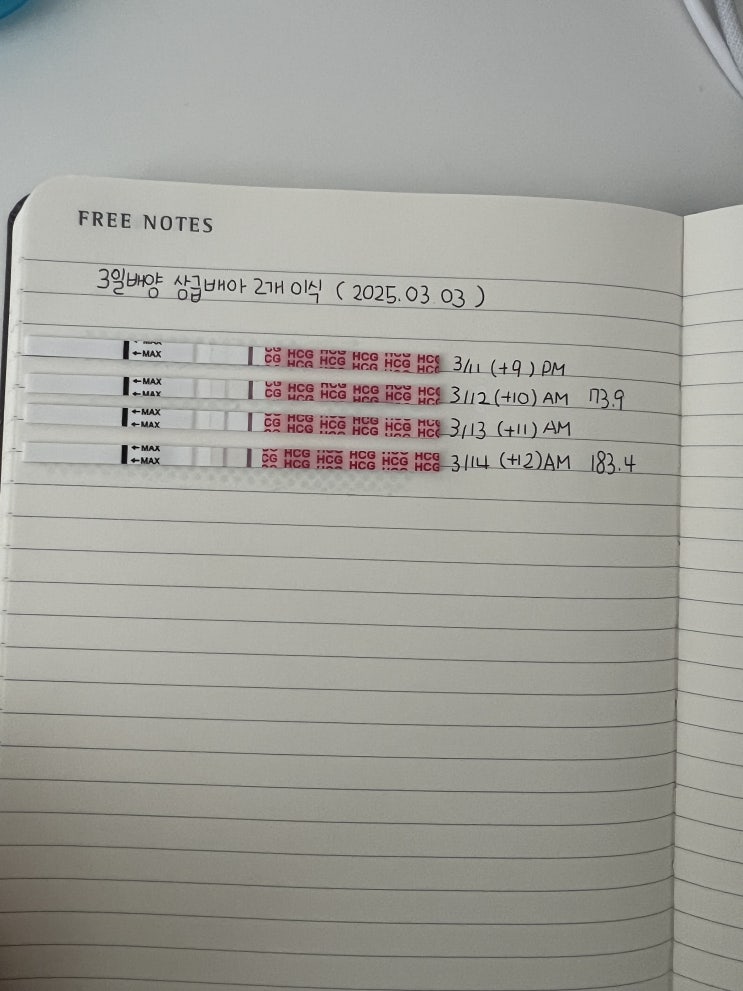 FREE NOTES
3일배양 상급배아 2개 이식 ( 2025.03 03 )
←MAX CG HCG HCG HCG HCG HCG 3/11 (+9) PM
←MAX HCG HCG HCG HCG HCG 3/12 (+10) AM 173.9
←MAX CG HCG HCG HCG HCG HCG 3/13 (+11) AM
←MAX
←MAX CG HCG HCG HCG HCG HCG 3/14 (+12) AM 183.4